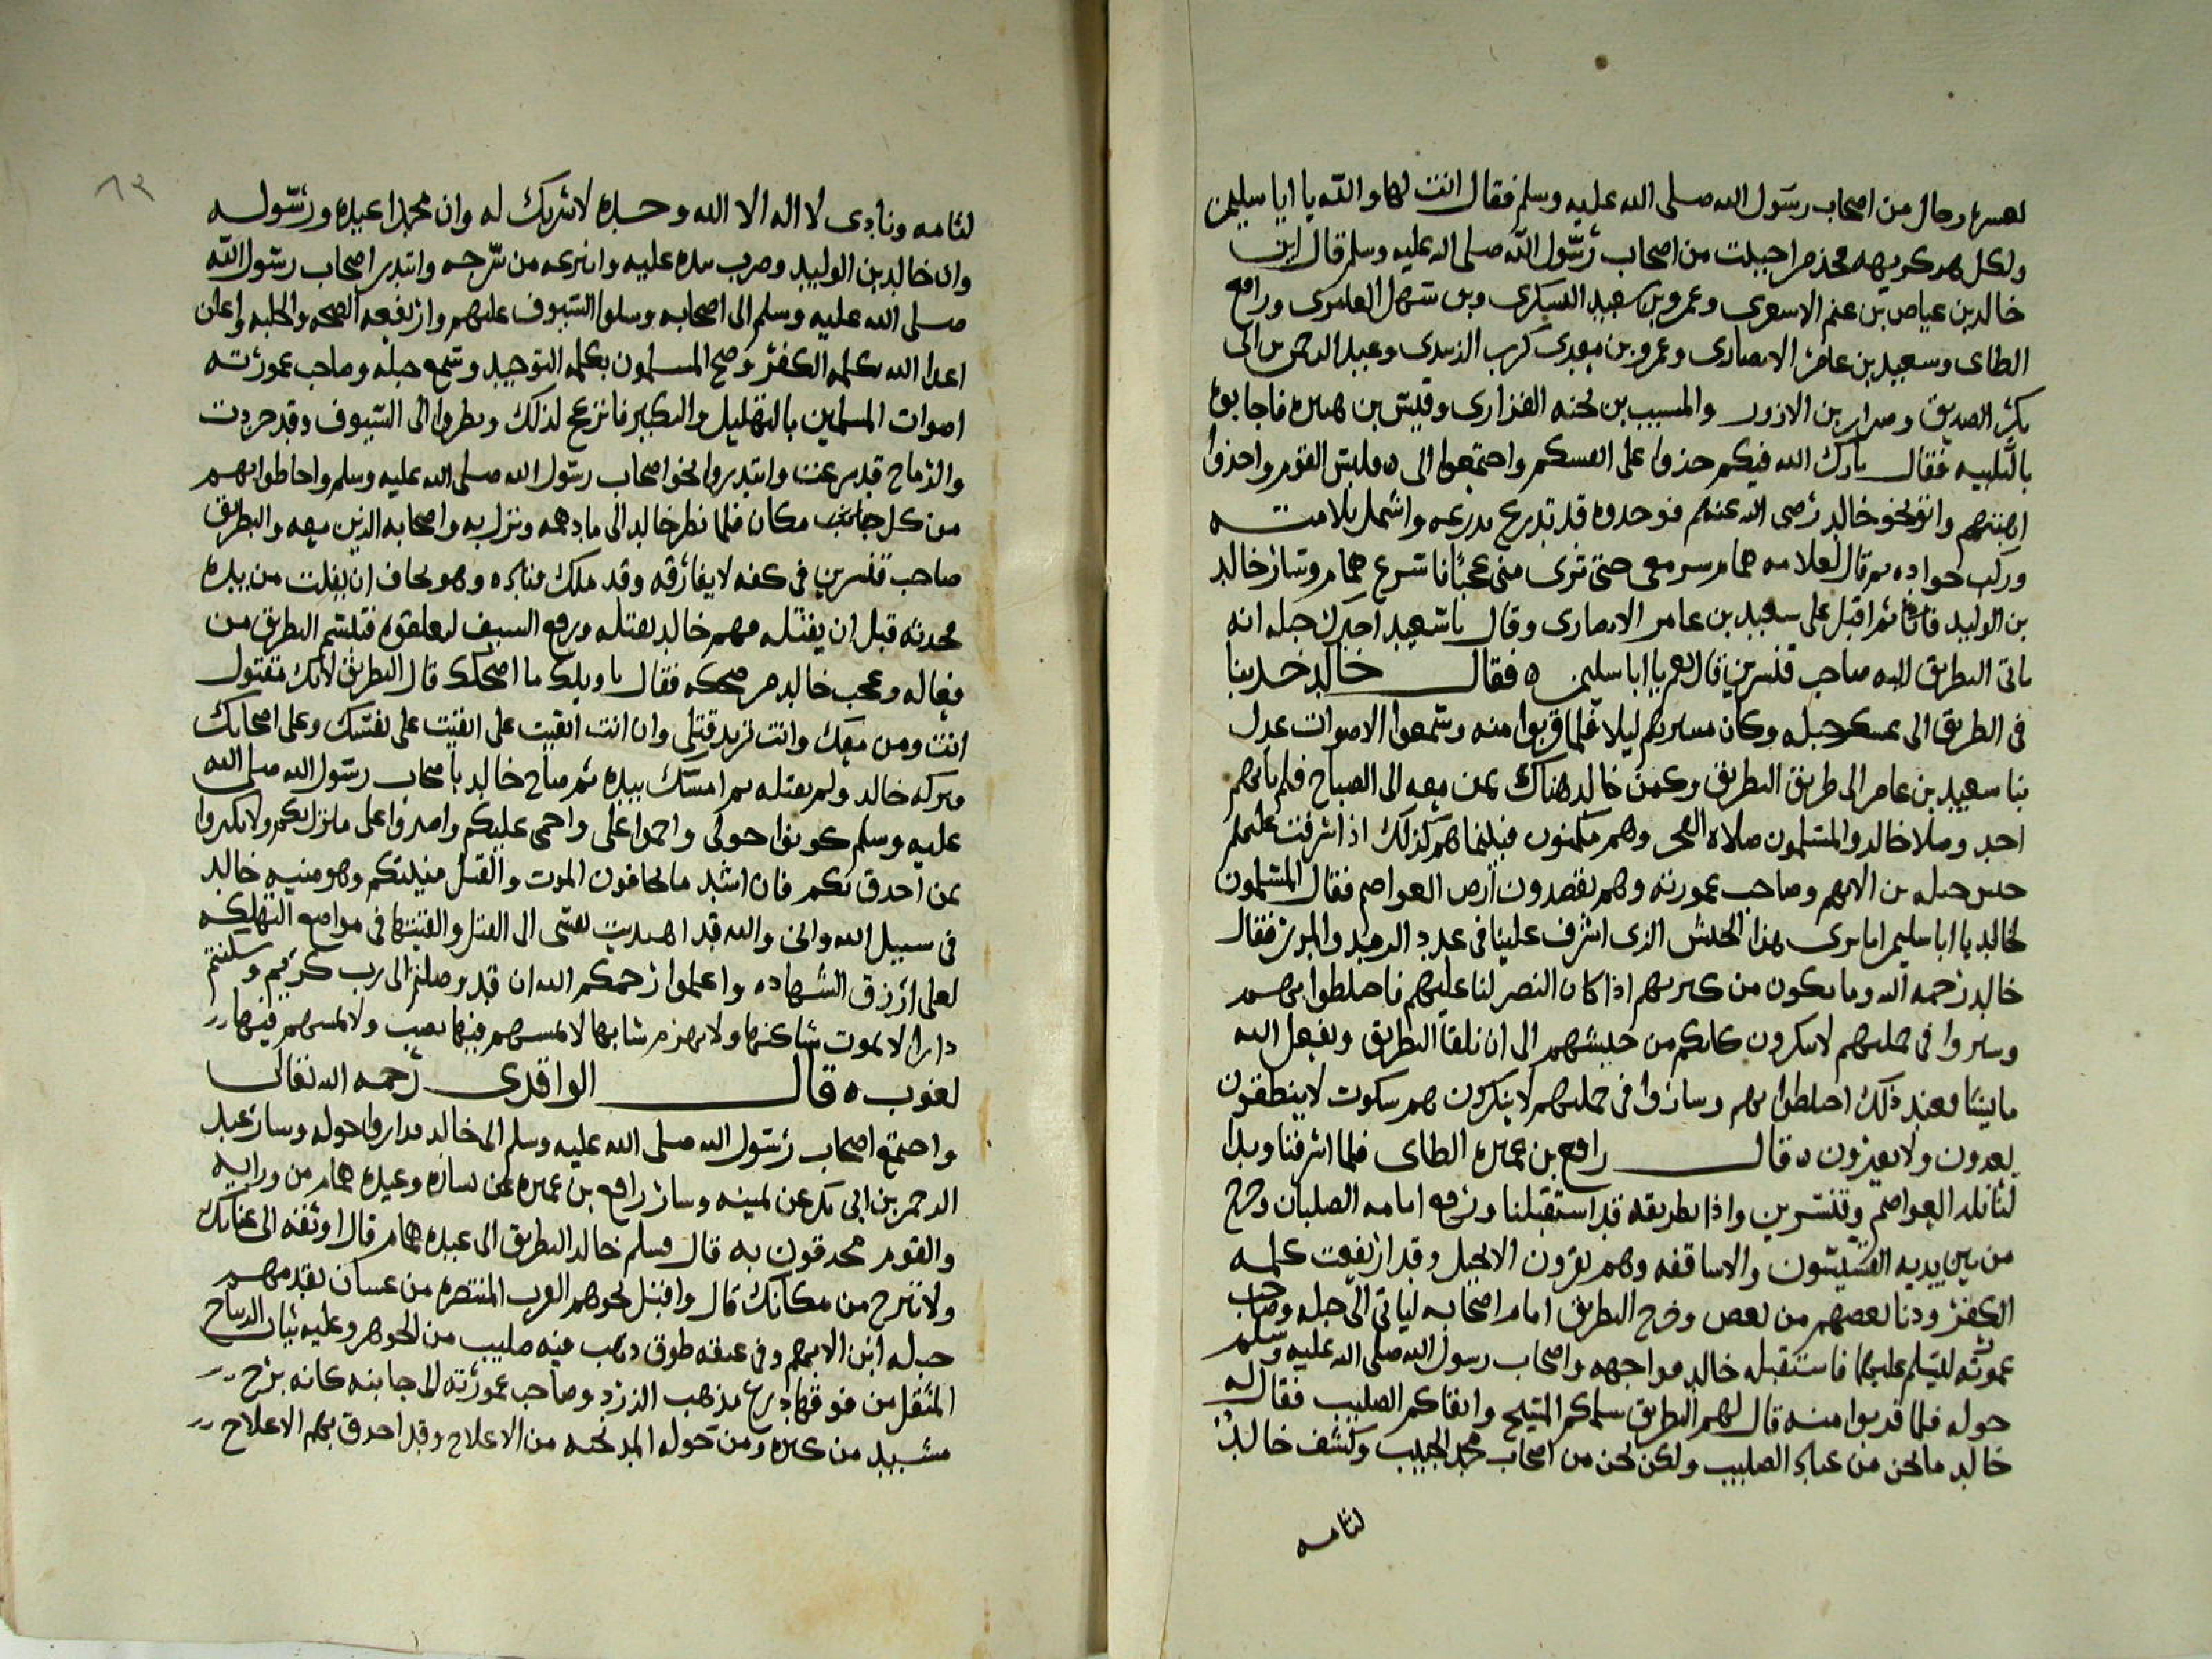 لعسره رجال من اصحاب رسول الله صلى الله عليه وسلم فقال انت لها والله يا ابا سليمن
ولكل كريهه من اصحاب رسول الله صلى الله عليه وسلم قال ابن
خالد بن عياض بن غنم الاسعرى وعمرو بن سعيد اليسكرى وبن سهل العامرى ورافع
الطاى وسعيد بن عامر الانصارى وعمرو بن معدى كرب الزبيدى وعبد الرحمن بن ابى
بكر الصديق وضرار بن الازور والمسيب بن نجبه الفزارى وقيس بن هبيره فاجابوه
بالتلبيه فقال بارك الله فيكم خذوا على انفسكم واجتمعوا الى ه فلبس القوم واخذوا
اهبتهم واتو نحو خالد رضى الله عنهم فوجدوه قد تدرع بدرعه واشتمل بلامته
وركب جواده ثم قال لغلامه همام سر معى حتى ترى منى عجبا فاسرع همام وسار خالد
بن الوليد ثم اقبل على سعيد بن عامر الانصارى وقال يا سعيد اخبرك جبله انه
ياتى البطريق اليه صاحب قنسرين قال نعم يا ابا سليمن ه فقال خالد خذ بنا
فى الطريق الى عسكر جبله وكان مسيرهم ليلا فلما قربوا منه وسمعوا الاصوات عدل
بنا سعيد بن عامر الى طريق البطريق وكمن خالد هناك بمن معه الى الصباح فلم ياتهم
احد وصلا خالد والمسلمون صلاه الفجر وهم مكمنون فبينما هم كذلك اذ اشرفت عليهم
جيش جبله بن الايهم وصاحب عموريه وهم يقصدون ارض العواصم فقال المسلمون
لخالد يا ابا سليم اما ترى هذا الجيش الذى اشرف علينا فى عدد فقال
خالد رحمه الله وما يكون من كثرتهم اذا كان النصر لنا عليهم فاختلطوا بهم
وسيروا فى جملتهم لا تنكرون كانكم من جيشهم الى ان نلقا البطريق ويفعل الله
ما يشا فعند ذلك اختلطوا بهم وساروا فى جملتهم لا ينكرون وهم سكوت لا ينطقون
ه قال رافع بن عميره الطاى فلما اشرفنا وبدا
لنا بلد العواصم وقنسرين واذا بطريقه قد استقبلنا ورفع امامه الصلبان وخرج
من بين يديه القسيسون والاساقفه وهم يقرون الانجيل وقد ارتفعت كلمه
الكفر ودنا بعضهم من بعض وخرج البطريق امام اصحابه لياتى الى جبله وصاحب
عموريه ليسلم عليهما فاستقبله خالد مواجهه واصحاب رسول الله صلى الله عليه وسلم
حوله فلما قربوا منه قال لهم البطريق سلمكم المسيح وابقاكم الصليب فقال له
خالد ما نحن من عباد الصليب ولكن نحن من اصحاب محمد الحبيب وكشف خالد
لثامه
لثامه ونادى لا اله الا الله وحده لا شريك له وان محمدا عبده ورسوله
وان خالد بن الوليد وضرب يده عليه وانتزعه من سرجه وابتدر اصحاب رسول الله
صلى الله عليه وسلم الى اصحابه وسلوا السيوف عليهم وارتفعه الضجه والجلبه واعلن
اعدا الله بكلمه الكفر وضج المسلمون بكلمه التوحيد وسمع جبله وصاحب عموريه
اصوات المسلمين بالتهليل والتكبير فانزعج لذلك ونظروا الى السيوف وقد جردت
والرماح قد شرعت وابتدروا نحو اصحاب رسول الله صلى الله عليه وسلم واحاطوا بهم
من كل جانب مكان فلما نظر خالد الى ما دهمه ونزل به واصحابه الذين معه والبطريق
صاحب قنسرين فى كفه لا يفارقه وقد ملك قياده وهو يخاف ان يفلت من يده
قبل ان يقتله فهم خالد بقتله ورفع السيف فتبسم البطريق من
فعاله وعجب خالد من ضحكه فقال يا ويلك ما اضحكك قال البطريق لانك مقتول
انت ومن معك وانت تريد قتلى وان انت ابقيت على ابقيت على نفسك وعلى اصحابك
فتركه خالد ولم يقتله ثم امسك بيده ثم صاح خالد يا اصحاب رسول الله صلى الله
عليه وسلم كونوا حولى واحموا على واحمى عليكم واصبروا على ما نزل بكم ولا
بمن احدق بكم فان اشد ما تخافون الموت والقتل وهو خالد
فى سبيل الله وانى والله قد اهديت نفسى الى القتل والقيتها فى مواضع التهلكه
لعلى ارزق الشهاده واعلموا رحمكم الله ان قد وصلتم الى رب كريم وسكنتم
دارا لا يموت ساكنها ولا يهرم شابها لا يمسهم فيها نصب ولا يمسهم فيها
لغوب ه قال الواقدى رحمه الله تعالى
واجتمع اصحاب رسول الله صلى الله عليه وسلم الى خالد فداروا حوله وسار عبد
الرحمن بن ابى بكر عن يمينه وسار رافع بن عميره عن يساره وعبده همام من ورايه
والقوم محدقون به قال فسلم خالد البطريق الى عبده همام قال اوثقه الى
ولا تبرح من مكانك قال واقبل نحوهم العرب المنتصره من غسان يقدمهم
جبله ابن الايهم وفى عنقه طوق ذهب فيه صليب من الجوهر وعليه ثياب الديباج
المثقل من فوقها درع مذهب الزرد وصاحب عموريه الى جانبه كانه برج
مشيد من كبره ومن حوله المدبجه من الاعلاج وقد احدق بهم الاعلاج